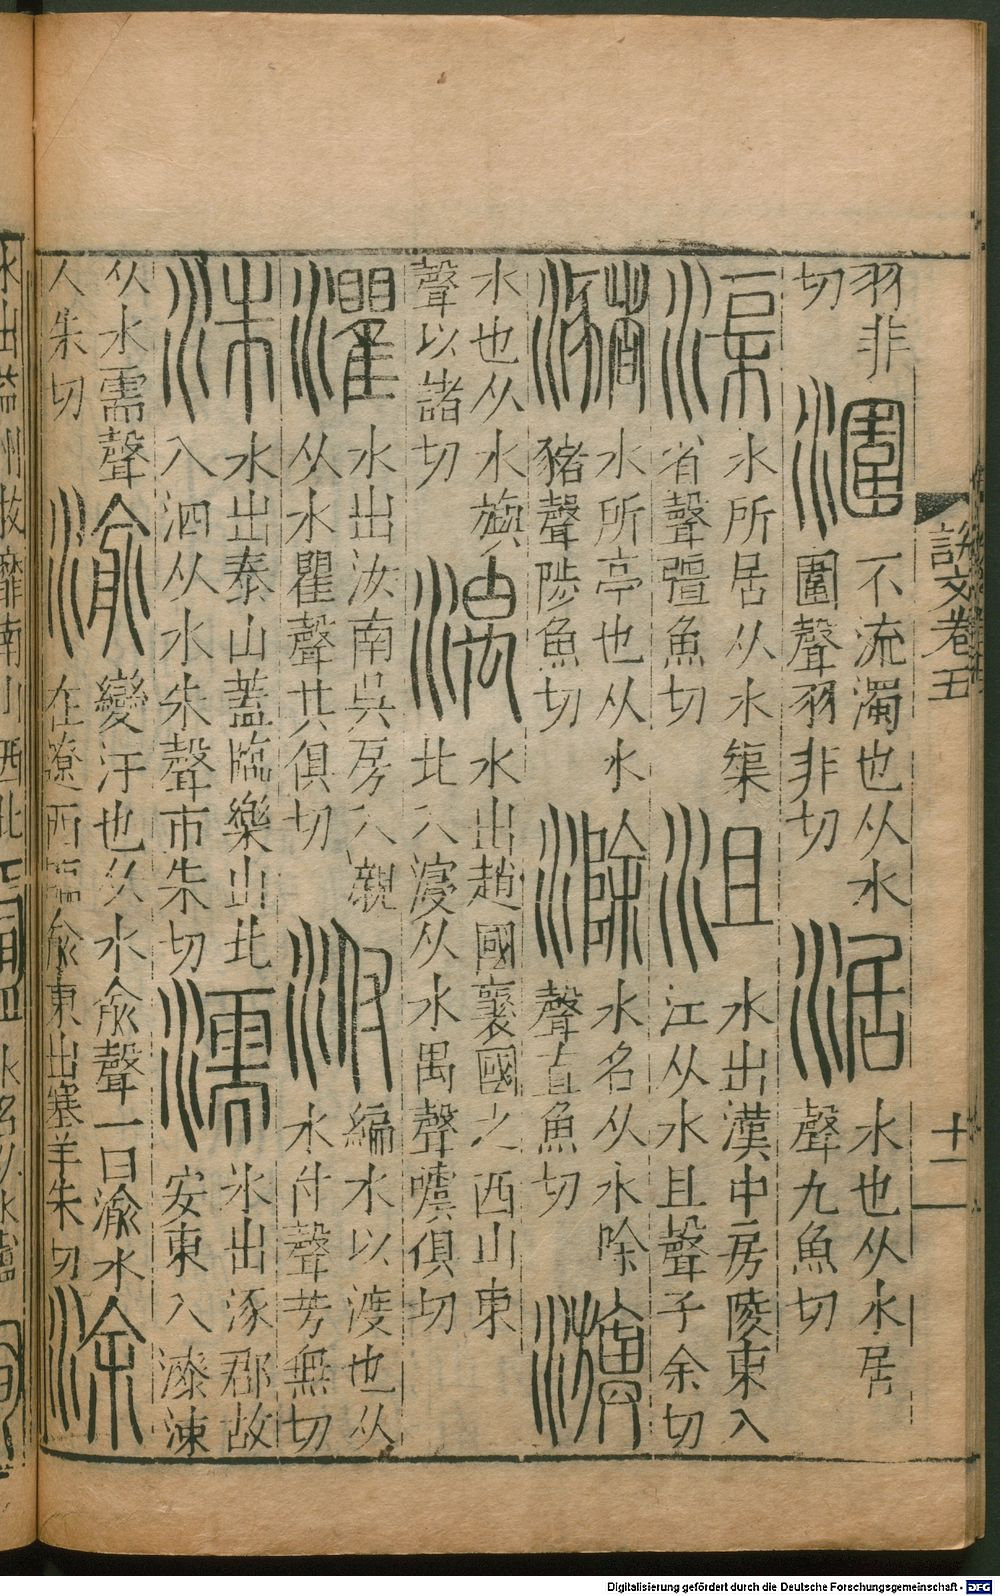 説文卷五
十二
羽非
切
潿
不流濁也从水
圍聲羽非切
涺
水也从水居
聲九魚切
渠
水所居从水榘
省聲彊魚切
沮
水出漢中房陵東入
江从水且聲子余切
瀦
水所亭也从水
豬聲陟魚切
滁
水名从水除
聲直魚切
水也从水旟
聲以諸切
湡
水出趙國襄國之西山東
北入寖从水禺聲噳俱切
灈
水出汝南吳房入瀙
从水瞿聲其俱切
泭
編水以渡也从
水付聲芳無切
洙
水出泰山蓋臨樂山北
入泗从水朱聲市朱切
濡
水出涿郡故
安東入漆涑
从水需聲
人朱切
渝
變汙也从水俞聲一曰渝水
在遼西臨俞東出塞羊朱切
涂
水出益州牧靡南山西北
水名从水盧
Digitalisierung gefördert durch die Deutsche Forschungsgemeinschaft - DFG